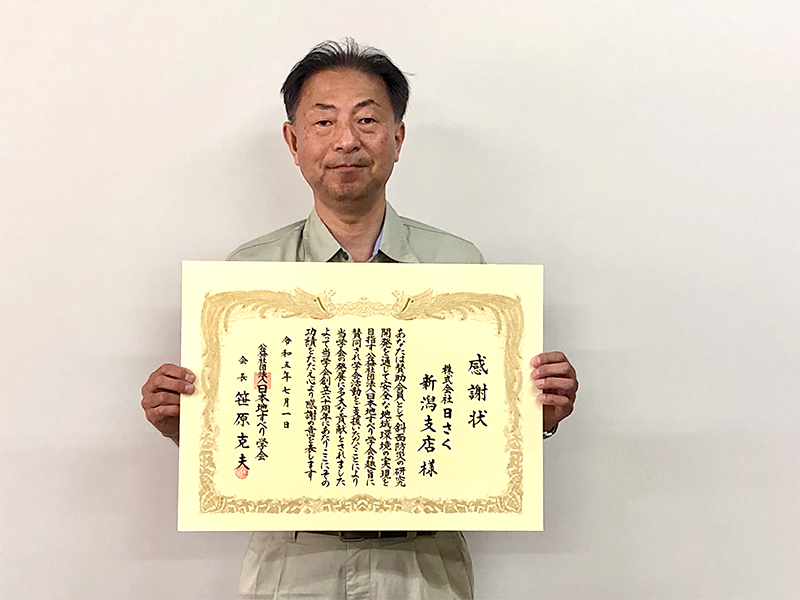 感謝状
株式会社日さく
新潟支店様
あなたは賛助会員として斜面防災の研究
開発を通じて安全な地域環境の実現を
目指す公益社団法人日本地すべり学会の趣旨に
賛同され学会活動を支援いただくことにより
当学会の発展に多大な貢献をされました
よって当学会創立六十周年にあたりここにその
功績をたたえ心より感謝の意を表します
令和五年七月一日
公益社団法人日本地すべり学会
会長 笹原克夫